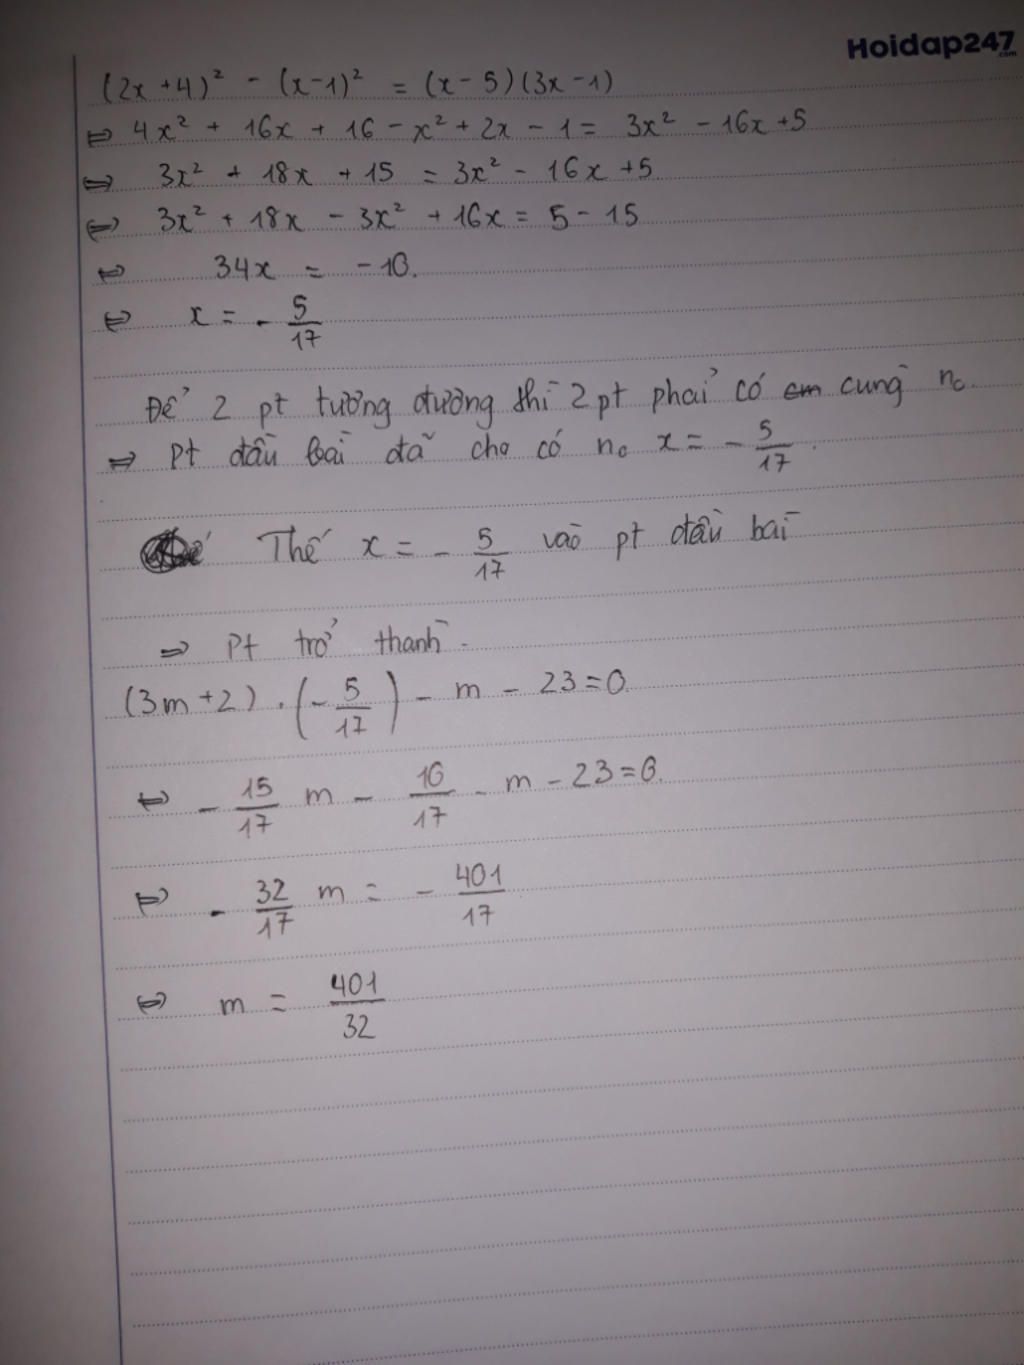 Hoidap247.com
(2x+4)² - (x-1)² = (x-5)(3x-1)
⇔ 4x² + 16x + 16 - x² + 2x - 1 = 3x² - 16x + 5
⇔ 3x² + 18x + 15 = 3x² - 16x + 5
⇔ 3x² + 18x - 3x² + 16x = 5 - 15
⇔ 34x = -10.
⇔ x = - 5/17
Để 2 pt tương đương thì 2 pt phải có cùng no
⇒ Pt đầu bài đã cho có no x = - 5/17.
Thế x = - 5/17 vào pt đầu bài
⇒ Pt trở thành
(3m+2).(-5/17) - m - 23 = 0
⇔ - 15/17 m - 10/17 - m - 23 = 0.
⇔ - 32/17 m = - 401/17
⇔ m = 401/32